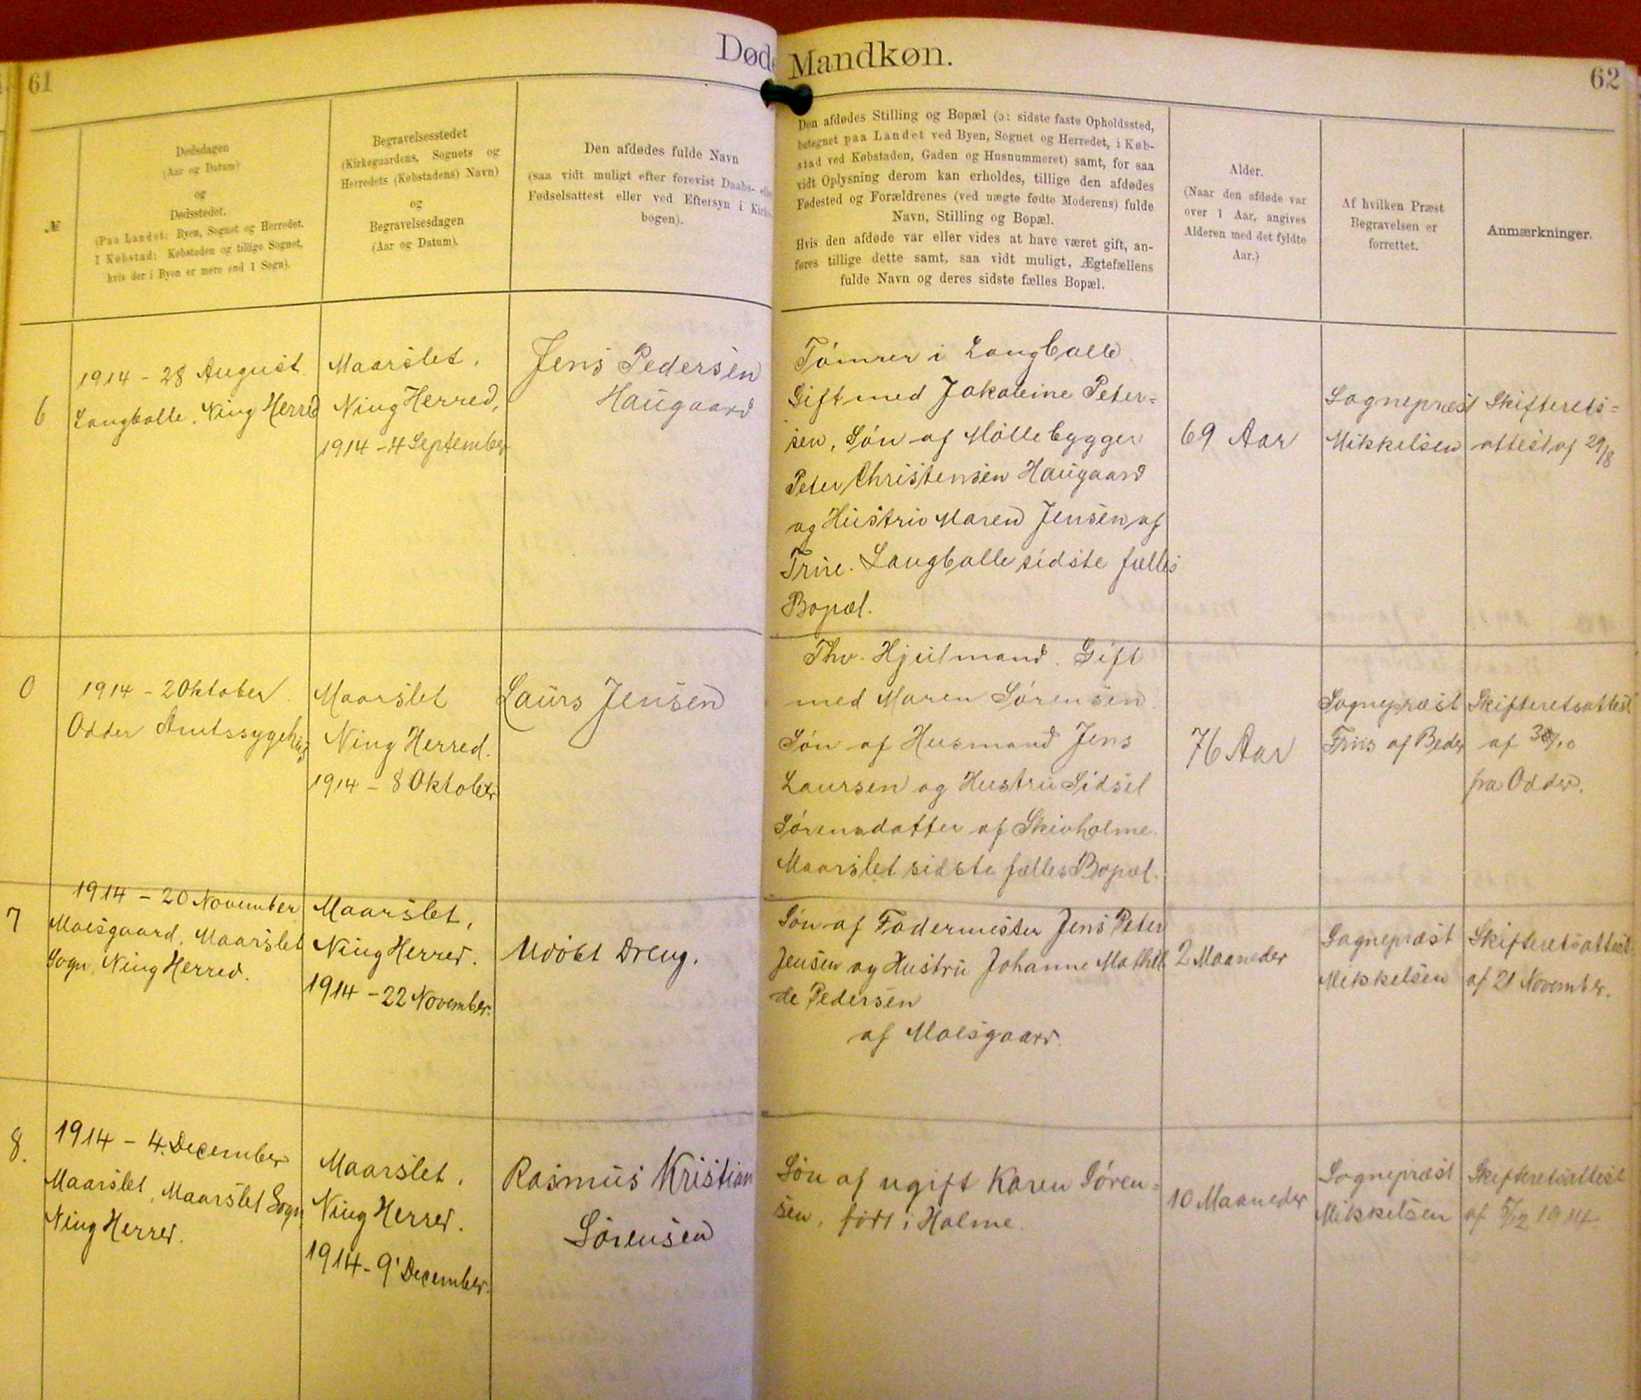 61
Døde
Mandkøn.
62
№
Dødsdagen
(Aar og Datum)
og
Dødsstedet.
(Paa Landet: Byen, Sognet og Herredet.
I Købstad: Købstaden og tillige Sognet,
hvis der i Byen er mere end 1 Sogn).
Begravelsesstedet
(Kirkegaardens, Sognets og
Herredets (Købstadens) Navn)
og
Begravelsesdagen
(Aar og Datum).
Den afdødes fulde Navn
(saa vidt muligt efter forevist Daabs- eller
Fødselsattest eller ved Eftersyn i Kirke-
bogen).
Den afdødes Stilling og Bopæl (ɔ: sidste faste Opholdssted,
betegnet paa Landet ved Byen, Sognet og Herredet, i Køb-
stad ved Købstaden, Gaden og Husnummeret) samt, for saa
vidt Oplysning derom kan erholdes, tillige den afdødes
Fødested og Forældrenes (ved uægte fødte Moderens) fulde
Navn, Stilling og Bopæl.
Hvis den afdøde var eller vides at have været gift, an-
føres tillige dette samt, saa vidt muligt, Ægtefællens
fulde Navn og deres sidste fælles Bopæl.
Alder.
(Naar den afdøde var
over 1 Aar, angives
Alderen med det fyldte
Aar.)
Af hvilken Præst
Begravelsen er
forrettet.
Anmærkninger.
6
1914 - 28 August
Langballe, Ning Herred
Maarslet,
Ning Herred,
1914 - 4 September
Jens Pedersen
Haugaard
Tømrer i Langballe
Gift med Jakobine Peter-
sen, Søn af Møllebygger
Peter Christensen Haugaard
og Hustru Maren Jensen af
Trige. Langballe sidste fælles
Bopæl.
69 Aar
Sognepræst
Mikkelsen
Skifterets-
attest af 29/8
0
1914 - 2 Oktober
Odder Amtssygehus
Maarslet
Ning Herred.
1914 - 8 Oktober
Laurs Jensen
Fhv. Hjulmand. Gift
med Maren Sørensen.
Søn af Husmand Jens
Laursen og Hustru Sidsel
Sørensdatter af Skivholme.
Maarslet sidste fælles Bopæl.
76 Aar
Sognepræst
Friis af Beder
Skifteretsattest
af /10
fra Odder.
7
1914 - 20 November
Moesgaard, Maarslet
Sogn, Ning Herred.
Maarslet,
Ning Herred.
1914 - 22 November.
Udøbt Dreng.
Søn af Fodermester Jens Peter
Jensen og Hustru Johanne Mathil
de Pedersen
af Moesgaard.
2 Maaneder
Sognepræst
Mikkelsen
Skifteretsattest
af 21 November.
8.
1914 - 4. December
Maarslet, Maarslet Sogn
Ning Herred.
Maarslet,
Ning Herred.
1914 - 9' December.
Rasmus Kristian
Sørensen
Søn af ugift Karen Søren-
sen, født i Holme.
10 Maaneder
Sognepræst
Mikkelsen
Skifteretsattest
af 5/12 1914